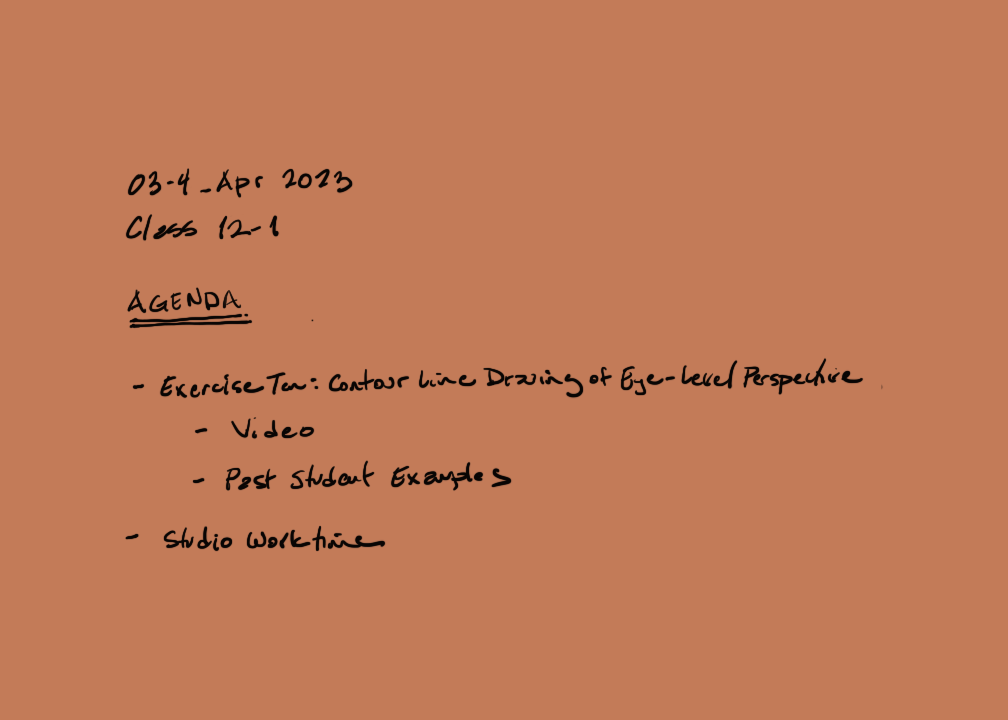 03-4_Apr 2023
Class 12-1
AGENDA
- Exercise Ten: Contour Line Drawing of Eye-Level Perspective
- Video
- Past Student Examples
- Studio Worktime